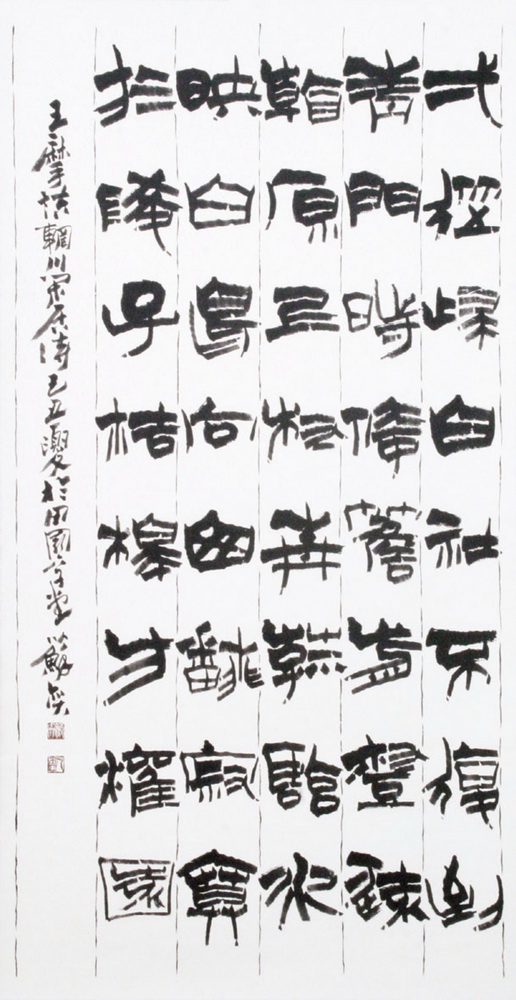 弌從歸白社不復到
青門時倚簷前樹遠
看原上村青菰臨水
映白鳥向山翻寂寞
於陵子桔槔方灌園
王摩詰輞川閑居詩己丑夏於田園草堂